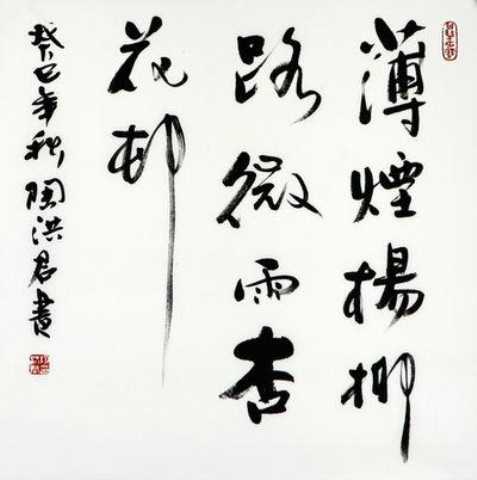 薄煙楊柳
路微雨杏
花邨
癸巳年秋陶洪君書